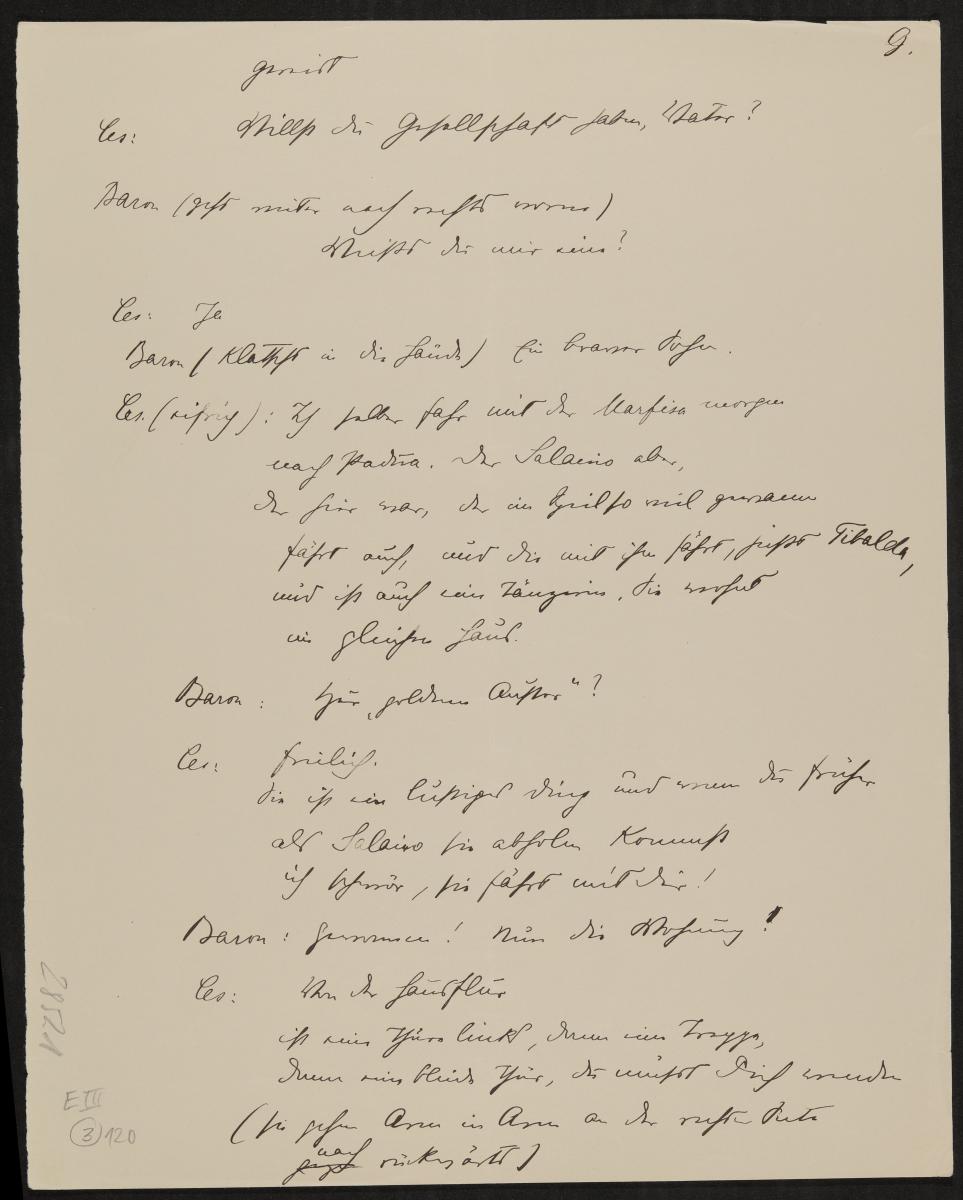 9.
gereist
Ces: Willst du Gesellschaft haben, Vater?
Baron (geht weiter nach rechts vorne)
Weißt du mir eine?
Ces: Ja
Baron (klatscht in die Hände) Ein braver Sohn.
Ces. (eifrig): Ich selber fahr mit der Marfisa morgen
nach Padua. Der Salaino aber,
der hier war, der im Spiel so viel gewann
fährt auch, und die mit ihm fährt, heißt Tibalda,
und ist auch eine Tänzerin. Sie wohnt
im gleichen Haus.
Baron: Zur „goldenen Auster"?
Ces: Freilich.
Sie ist ein lustiges Ding und wenn du früher
als Salaino sie abholen kommst
ich schwör, sie fährt mit dir!
Baron: Gewonnen! Nun die Wohnung!
Ces: Von der Hausflur
ist eine Thüre links, dann eine Treppe,
dann eine blinde Thür, du mußt Dich wenden
(sie gehen Arm in Arm an der rechten Seite
nach
rückwärts)
28521
E III
3 120